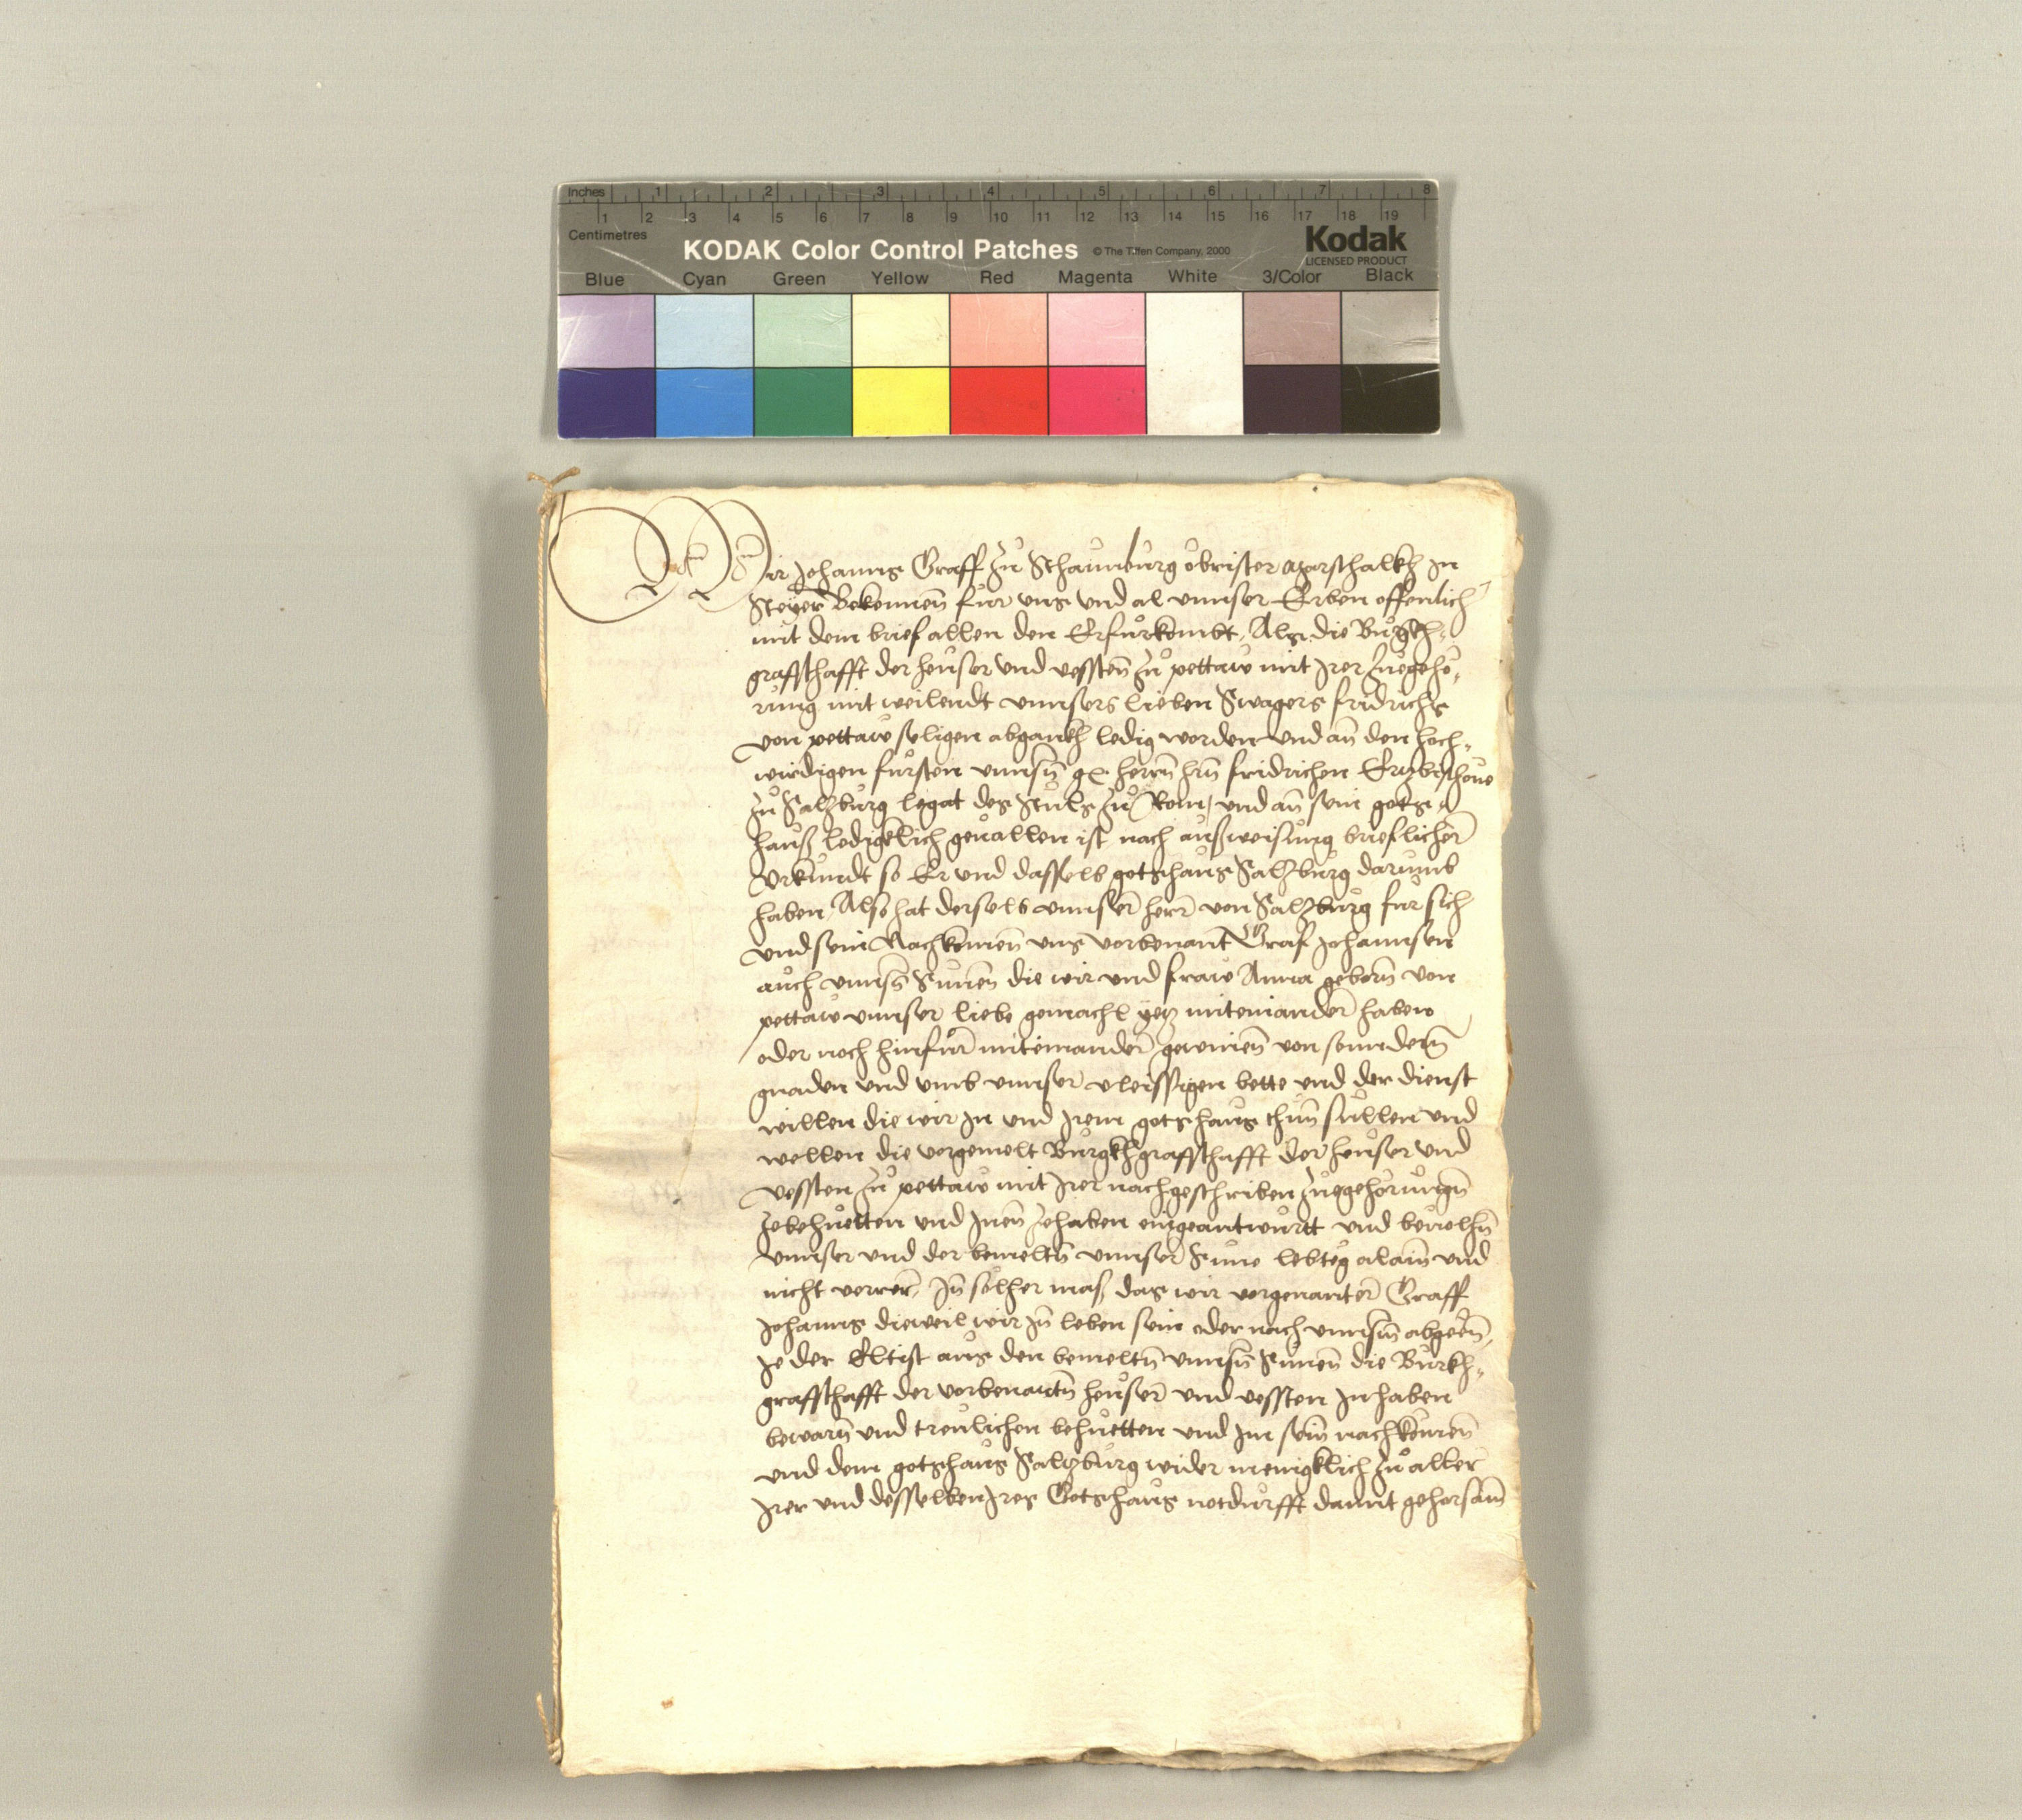 Inches 1 2 3 4 5 6 7 8
1 2 3 4 5 6 7 8 9 10 11 12 13 14 15 16 17 18 19
Centimetres
KODAK Color Control Patches © The Tiffen Company, 2000 Kodak
LICENSED PRODUCT
Blue Cyan Green Yellow Red Magenta White 3/Color Black
Wir Johanns Graff zu Schaunburg obrister Marschalkh In
Steyer Bekennen̄ fur vns vnd al vnnser Erben offenlich
mit dem brief allen den Erfurkombt, Als die Burgkh-
graffschafft der heuser vnd vessten̄ zu pettaw mit Irer Zuegeho-
rung mit weilendt vnnsers lieben Swagers fridrichs
von pettaw seligen abgankh ledig worden vnd an̄ den hoch-
wirdigen fursten vnnsn̄ gn. herrn̄ hrn̄ fridrichen Ertzbischoue
zu Saltzburg legat des Stuls zu Rom, vnd an̄ sein gots-
hauß ledigklich geuallen ist nach außweisung brieflicher̄
Vrkundt so Er vnd dasselb gotshaus Saltzburg darumb
haben, Also hat derselb vnnser̄ herr̄ von Saltzburg fur sich
vnd sein Nachkomen̄ vns vorbenant̄ Graf Johannsen
auch vnnsn̄ Sunen̄ die wir vnd fraw Anna geborn̄ von
pettaw vnnser liebe gemachl yetz miteinander̄ haben
oder noch hinfur̄ miteinander̄ gewinen̄ von sonndern̄
gnaden vnd vmb vnnser vleissigen bette vnd der dienst
willen die wir In vnd Irem gotshaus thun̄ sullen vnd
wellen die vorgemelt Burgkhgraffschafft der heuser vnd
vessten zu pettaw mit Irer nachgeschriben zuegehorungn̄
zebehuetten vnd Innen̄ zehaben eingeantwurtt vnd beuolhn̄
vnnser vnd der bemeltn̄ vnnser Sune lebteg alain̄ vnd
nicht verrer̄, In̄ solher mass das wir vorgenanter̄ Graff
Johanns dieweil wir In̄ leben sein oder nach vnnserm̄ abgeen̄,
Je der Eltist aus den bemeltn̄ vnnsn̄ Sunen̄ die Burkh-
graffschafft der vorbenantn̄ heuser̄ vnd vessten Inhaben
bewarn̄ vnd treulichen behuetten vnd Im sein̄ nachkomen̄
vnd dem gotshaus Saltzburg wider menigklich zu aller
Irer vnd desselben Ires Gotshaus notdurfft damit gehorsam̄